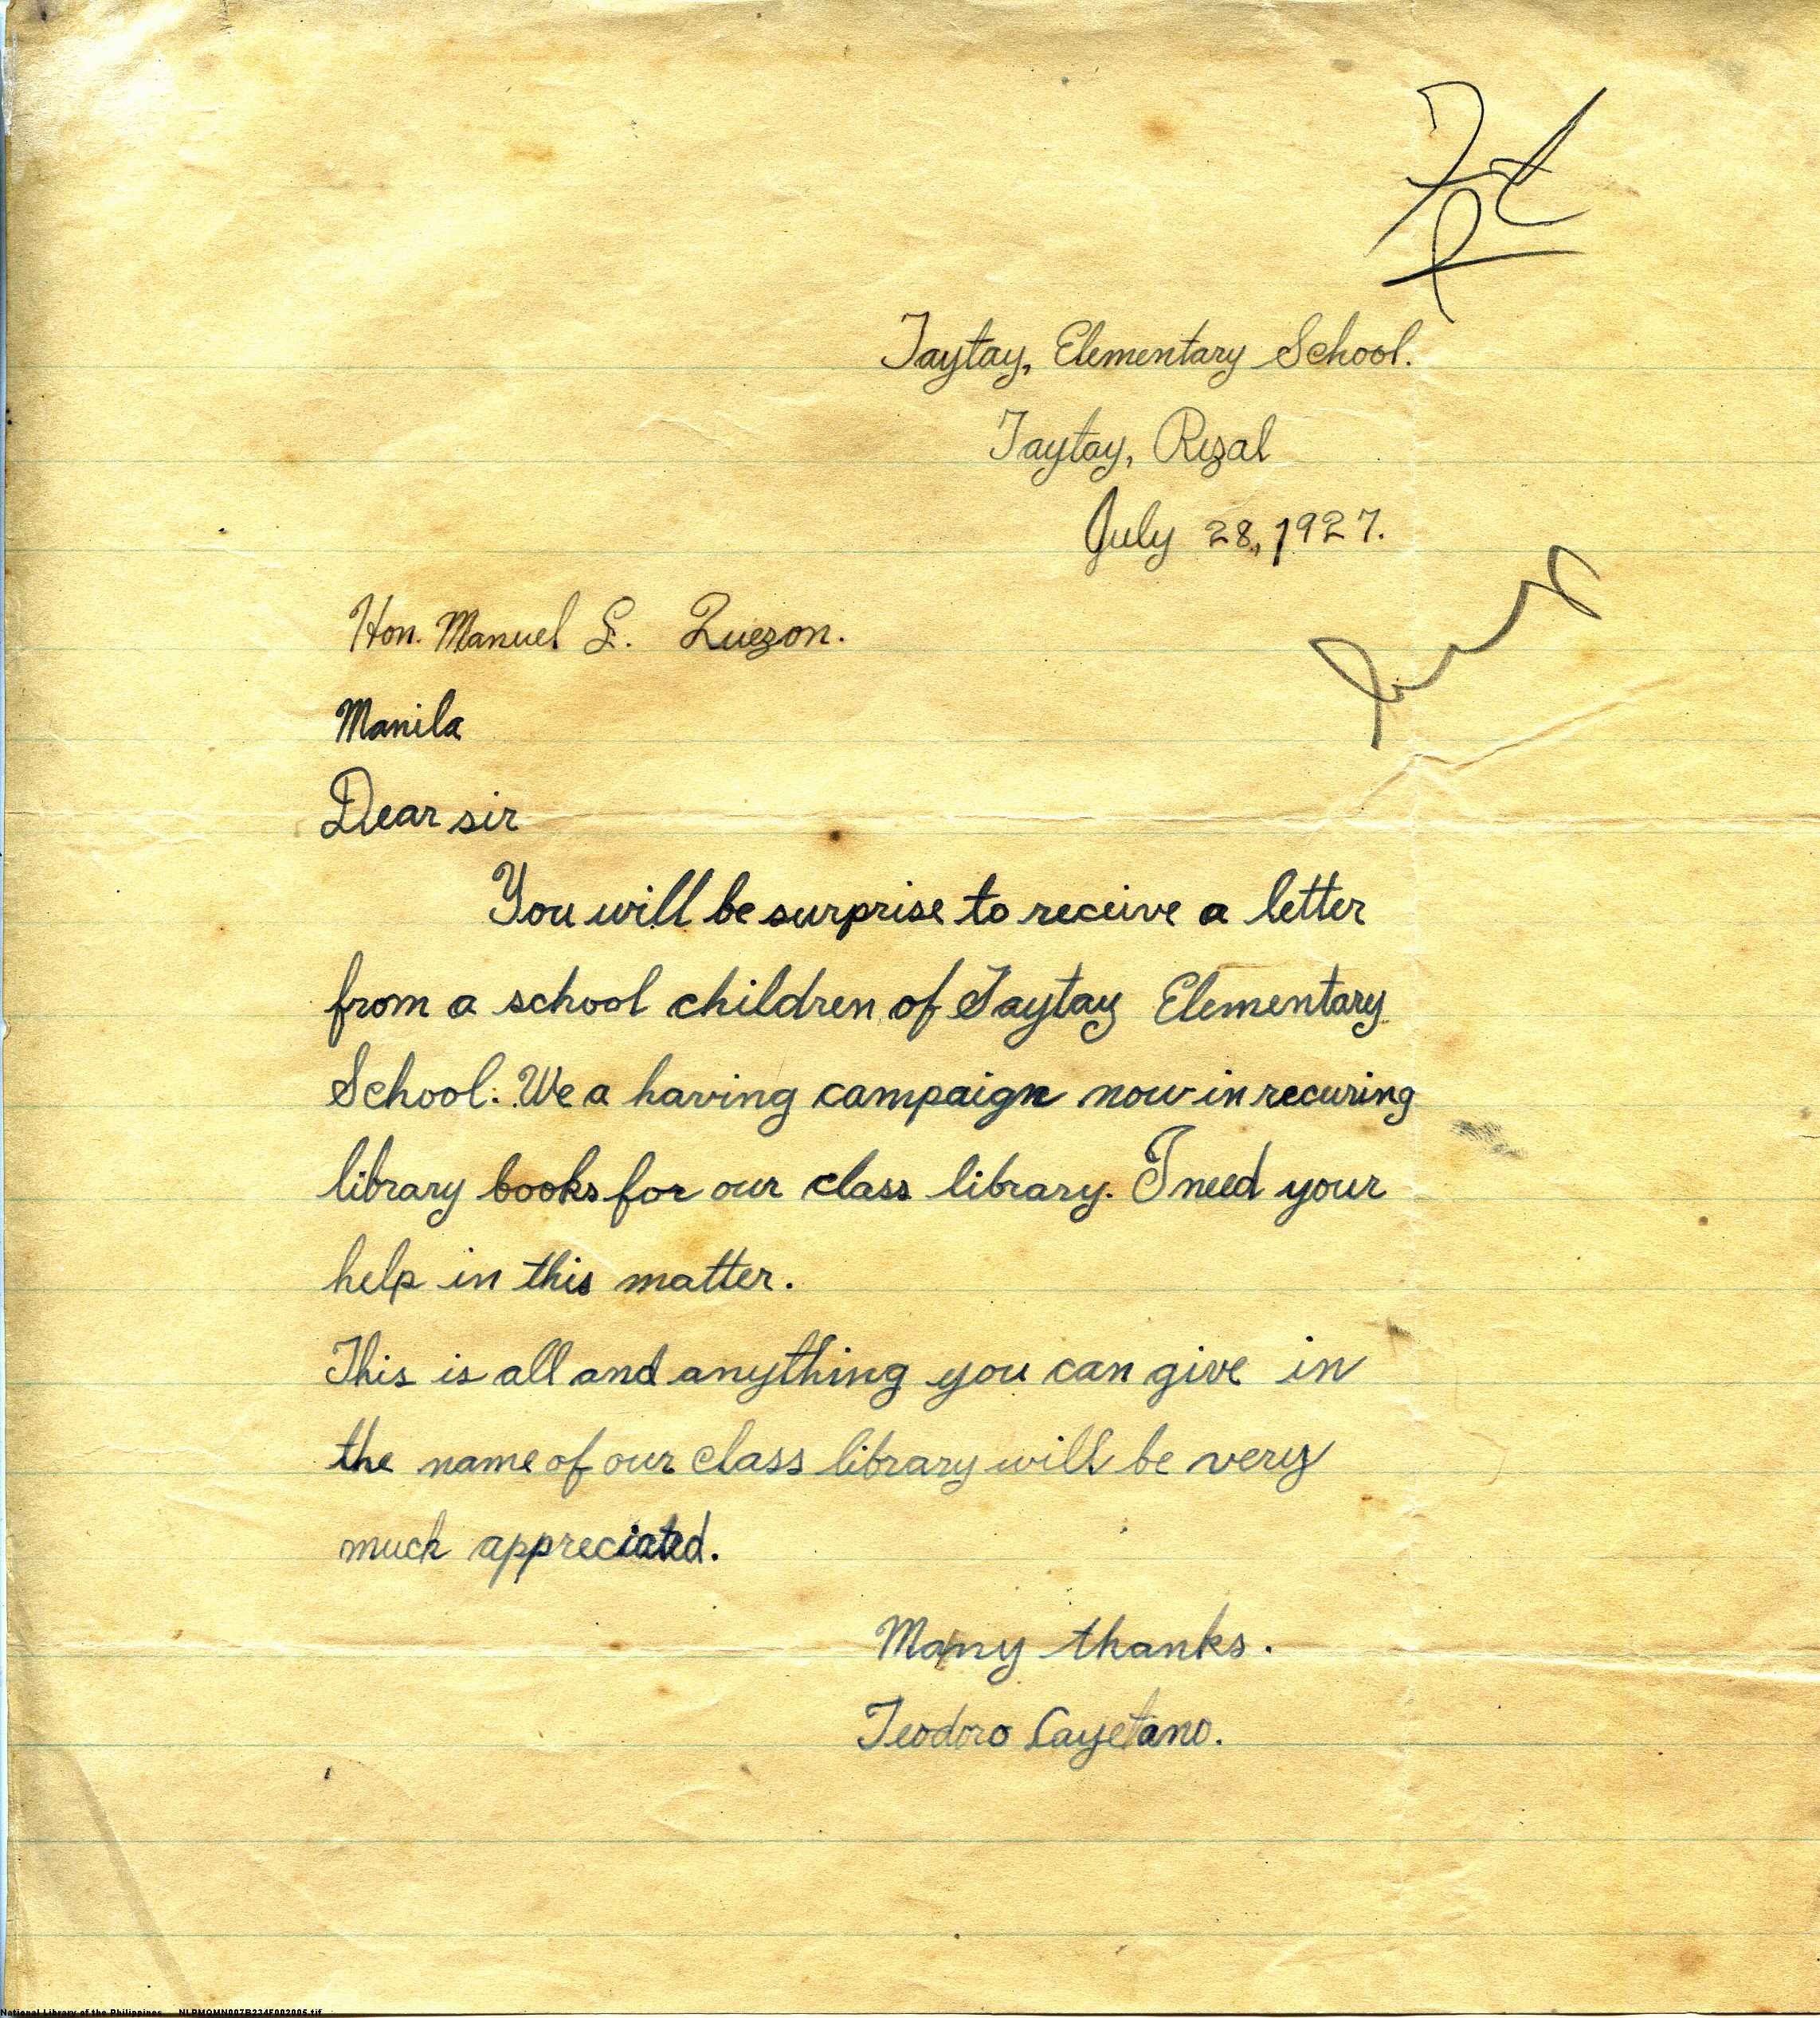 Taytay, Elementary School.
Taytay, Rizal
July 28, 1927.
Hon. Manuel L. Quezon.
Manila
Dear sir
You will be surprise to receive a letter
from a school children of Taytay Elementary
School. We a having campaign now in recuring
library books for our class library. I need your
help in this matter.
This is all and anything you can give in
the name of our class library will be very
much appreciated.
Many thanks.
Teodoro Cayetano.
National Library of the Philippines NLPMQMN007B234F002005.tif